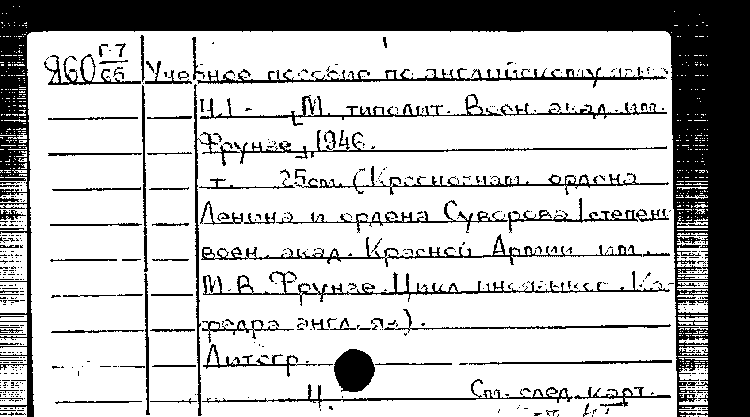 Я60 Г-7/сб Учебное пособие по английскому языку
Ч.1 - [М. типолит. Воен. акад. им.
Фрунзе], 1946.
т. 25см. (Краснознам. ордена
Ленина и ордена Суворова I степени
воен. акад. Красной Армии им.
М.В. Фрунзе. Цикл иноязыков. Ка-
федра англ. яз).
Литогр.
Ч. См. след. карт.